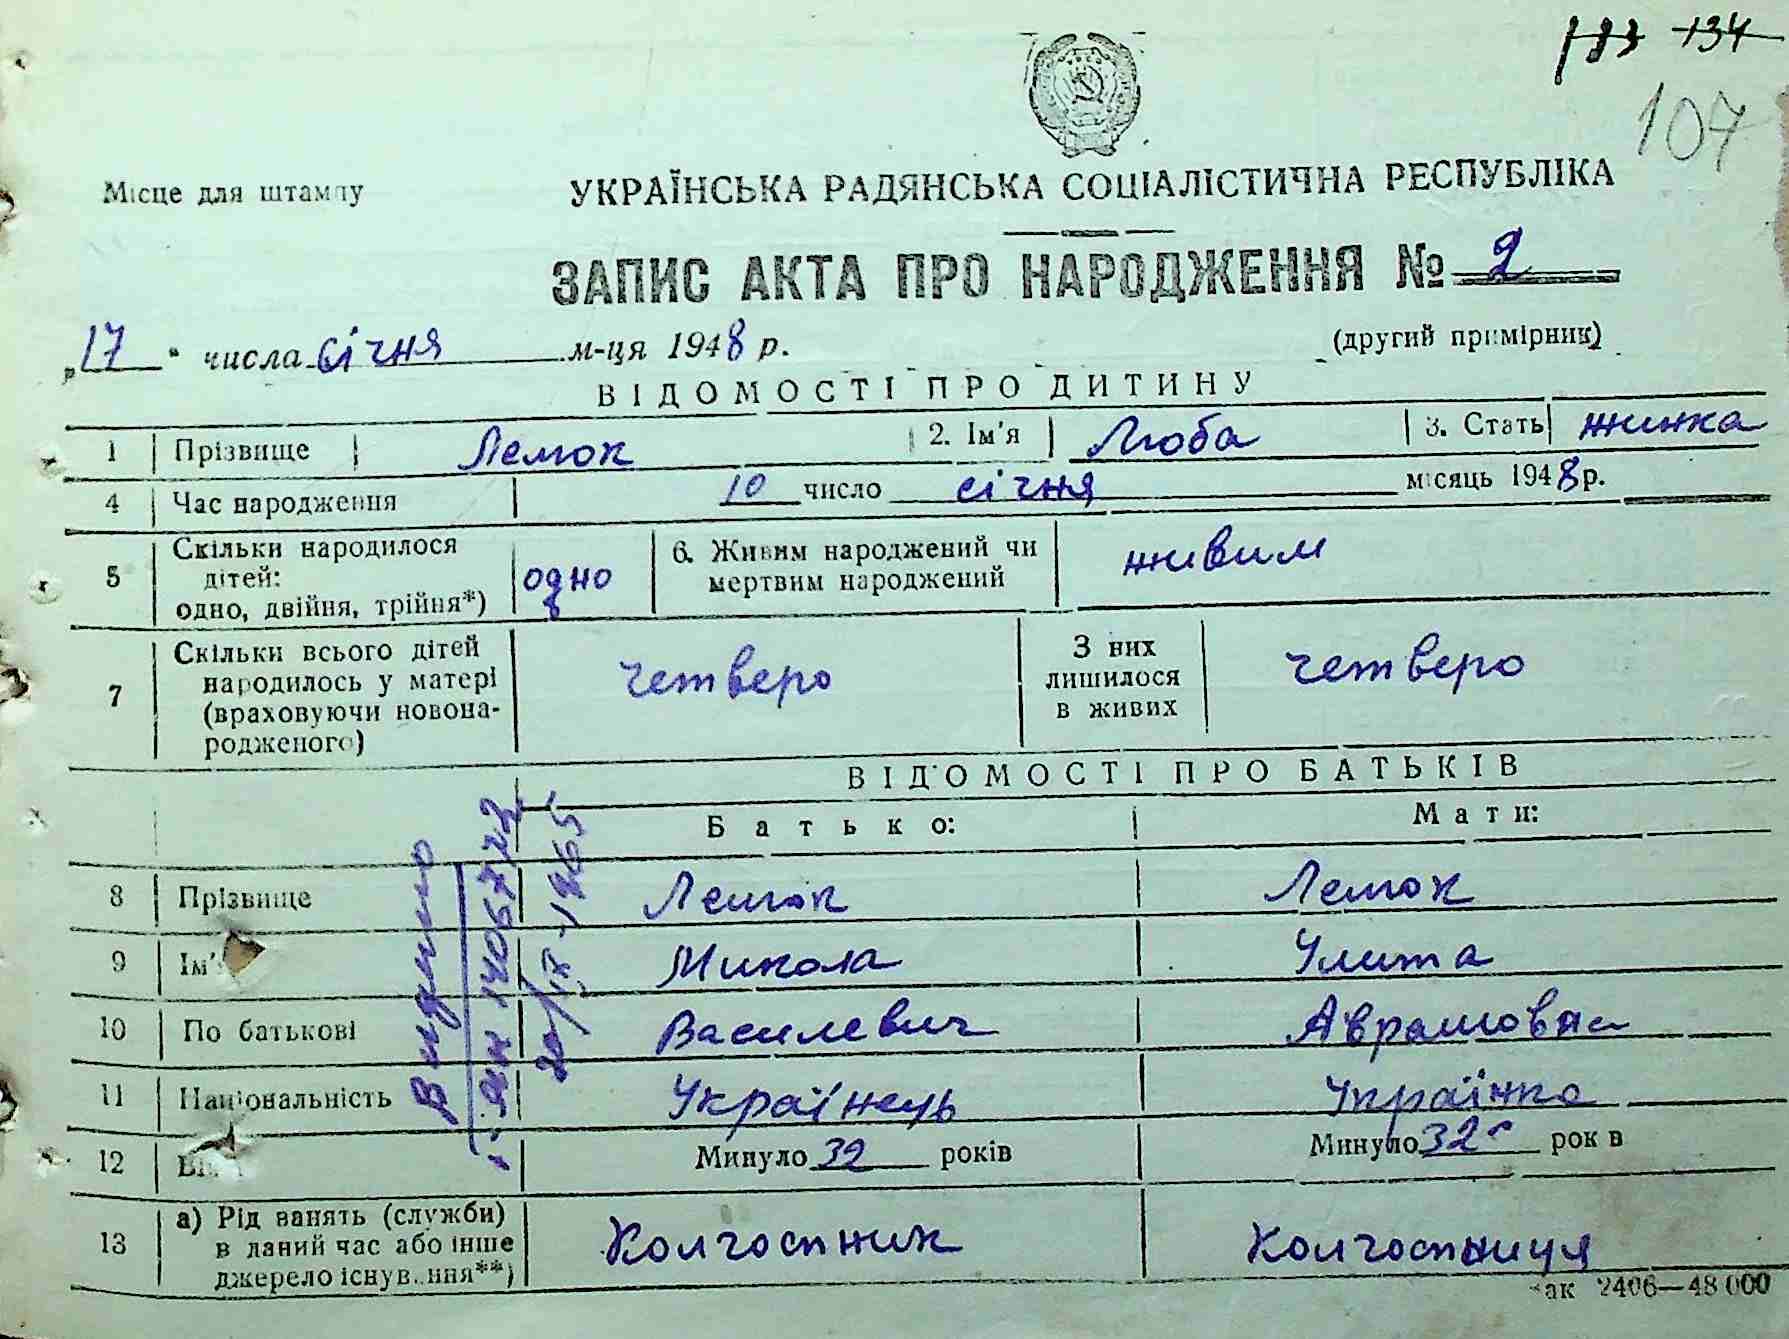 183 134
107
Місце для штампу
УКРАЇНСЬКА РАДЯНСЬКА СОЦІАЛІСТИЧНА РЕСПУБЛІКА
ЗАПИС АКТА ПРО НАРОДЖЕННЯ № 2
„17" числа січня м-ця 1948 р.
(другий примірник)
ВІДОМОСТІ ПРО ДИТИНУ
1 Прізвище Лемок 2. Ім'я Люба 3. Стать жинка
4 Час народження 10 число січня місяць 1948 р.
5 Скільки народилося дітей: одно, двійня, трійня*) одно 6. Живим народжений чи мертвим народжений живим
7 Скільки всього дітей народилось у матері (враховуючи новонародженого) четверо З них лишилося в живих четверо
ВІДОМОСТІ ПРО БАТЬКІВ
Батько: Мати:
8 Прізвище Лемок Лемок
9 Ім' Микола Улита
10 По батькові Василевич Аврамовна
11 Національність Українець Українка
12 Минуло 32 років Минуло 32 рок в
13 а) Рід занять (служби) в даний час або інше джерело існув..ння**) Колгостник Колгостниця
Видано
20/IX-1965
ак 2406—48 000